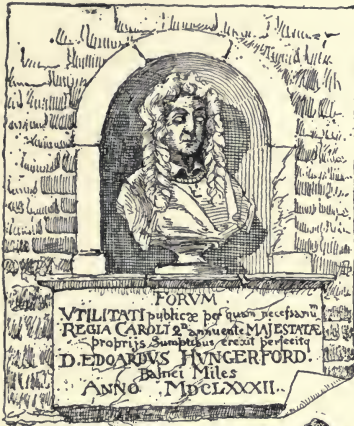 FORVM
VTILITATI publicæ per quam necessariū
REGIA CAROLI 2º annuente MAJESTATÆ
proprijs Sumptibus erexit perfecitq
D. EDOARDVS HVNGERFORD.
Balnei Miles
ANNO MDCLXXXII.